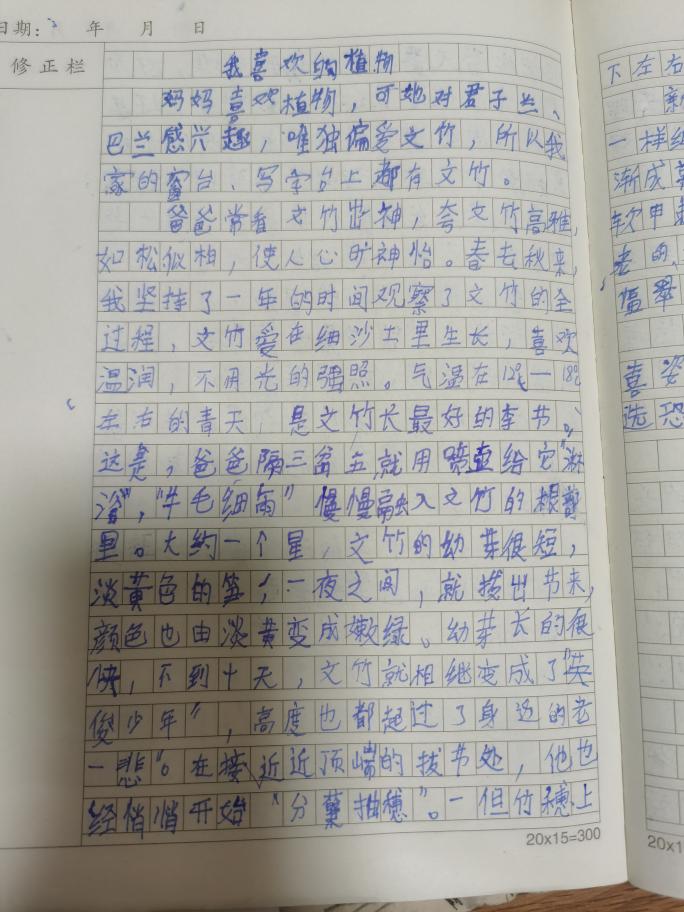 日期： 年 月 日
修正栏
我喜欢的植物
妈妈喜欢植物，可她对君子兰、
巴兰感兴趣，唯独偏爱文竹，所以我
家的窗台、写字台上都有文竹。
爸爸常看文竹出神，夸文竹高雅，
如松似柏，使人心旷神怡。春去秋来，
我坚持了一年的时间观察了文竹的全
过程，文竹爱在细沙土里生长，喜欢
温润，不用光的强照。气温在12℃—18℃
左右的青天，是文竹长最好的季节，
这是，爸爸隔三岔五就用喷壶给它"淋
浴"，"牛毛细雨"慢慢融入文竹的根
里。大约一个星，文竹的幼芽很短，
淡黄色的笋，一夜之间，就拔出节来，
颜色也由淡黄变成嫩绿。幼芽长的很
快，不到十天，文竹就相继变成了"英
俊少年"，高度也都超过了身边的老
一悲"。在接近近顶端的拔节处，他也
经悄悄开始"分蘖抽穗"。一但竹穗上
20x15=300
下左右
新
一样
渐成
软申
老的，
喜姿
选恐
20x1